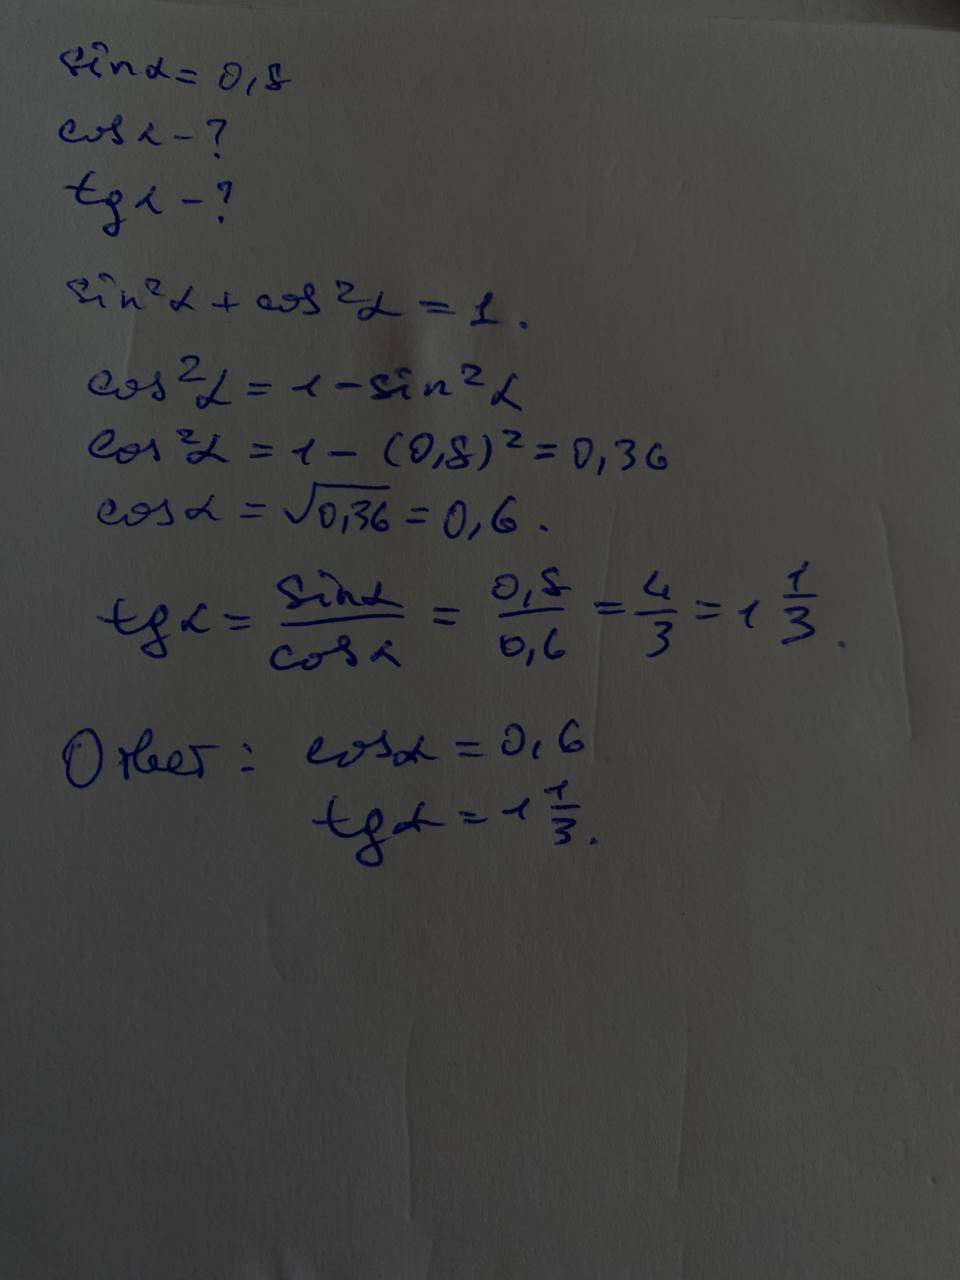 sinα = 0,8
cosα - ?
tgα - ?
sin²α + cos²α = 1.
cos²α = 1 - sin²α
cos²α = 1 - (0,8)² = 0,36
cosα = √0,36 = 0,6.
tgα = sinα/cosα = 0,8/0,6 = 4/3 = 1 1/3.
Ответ: cosα = 0,6
tgα = 1 1/3.